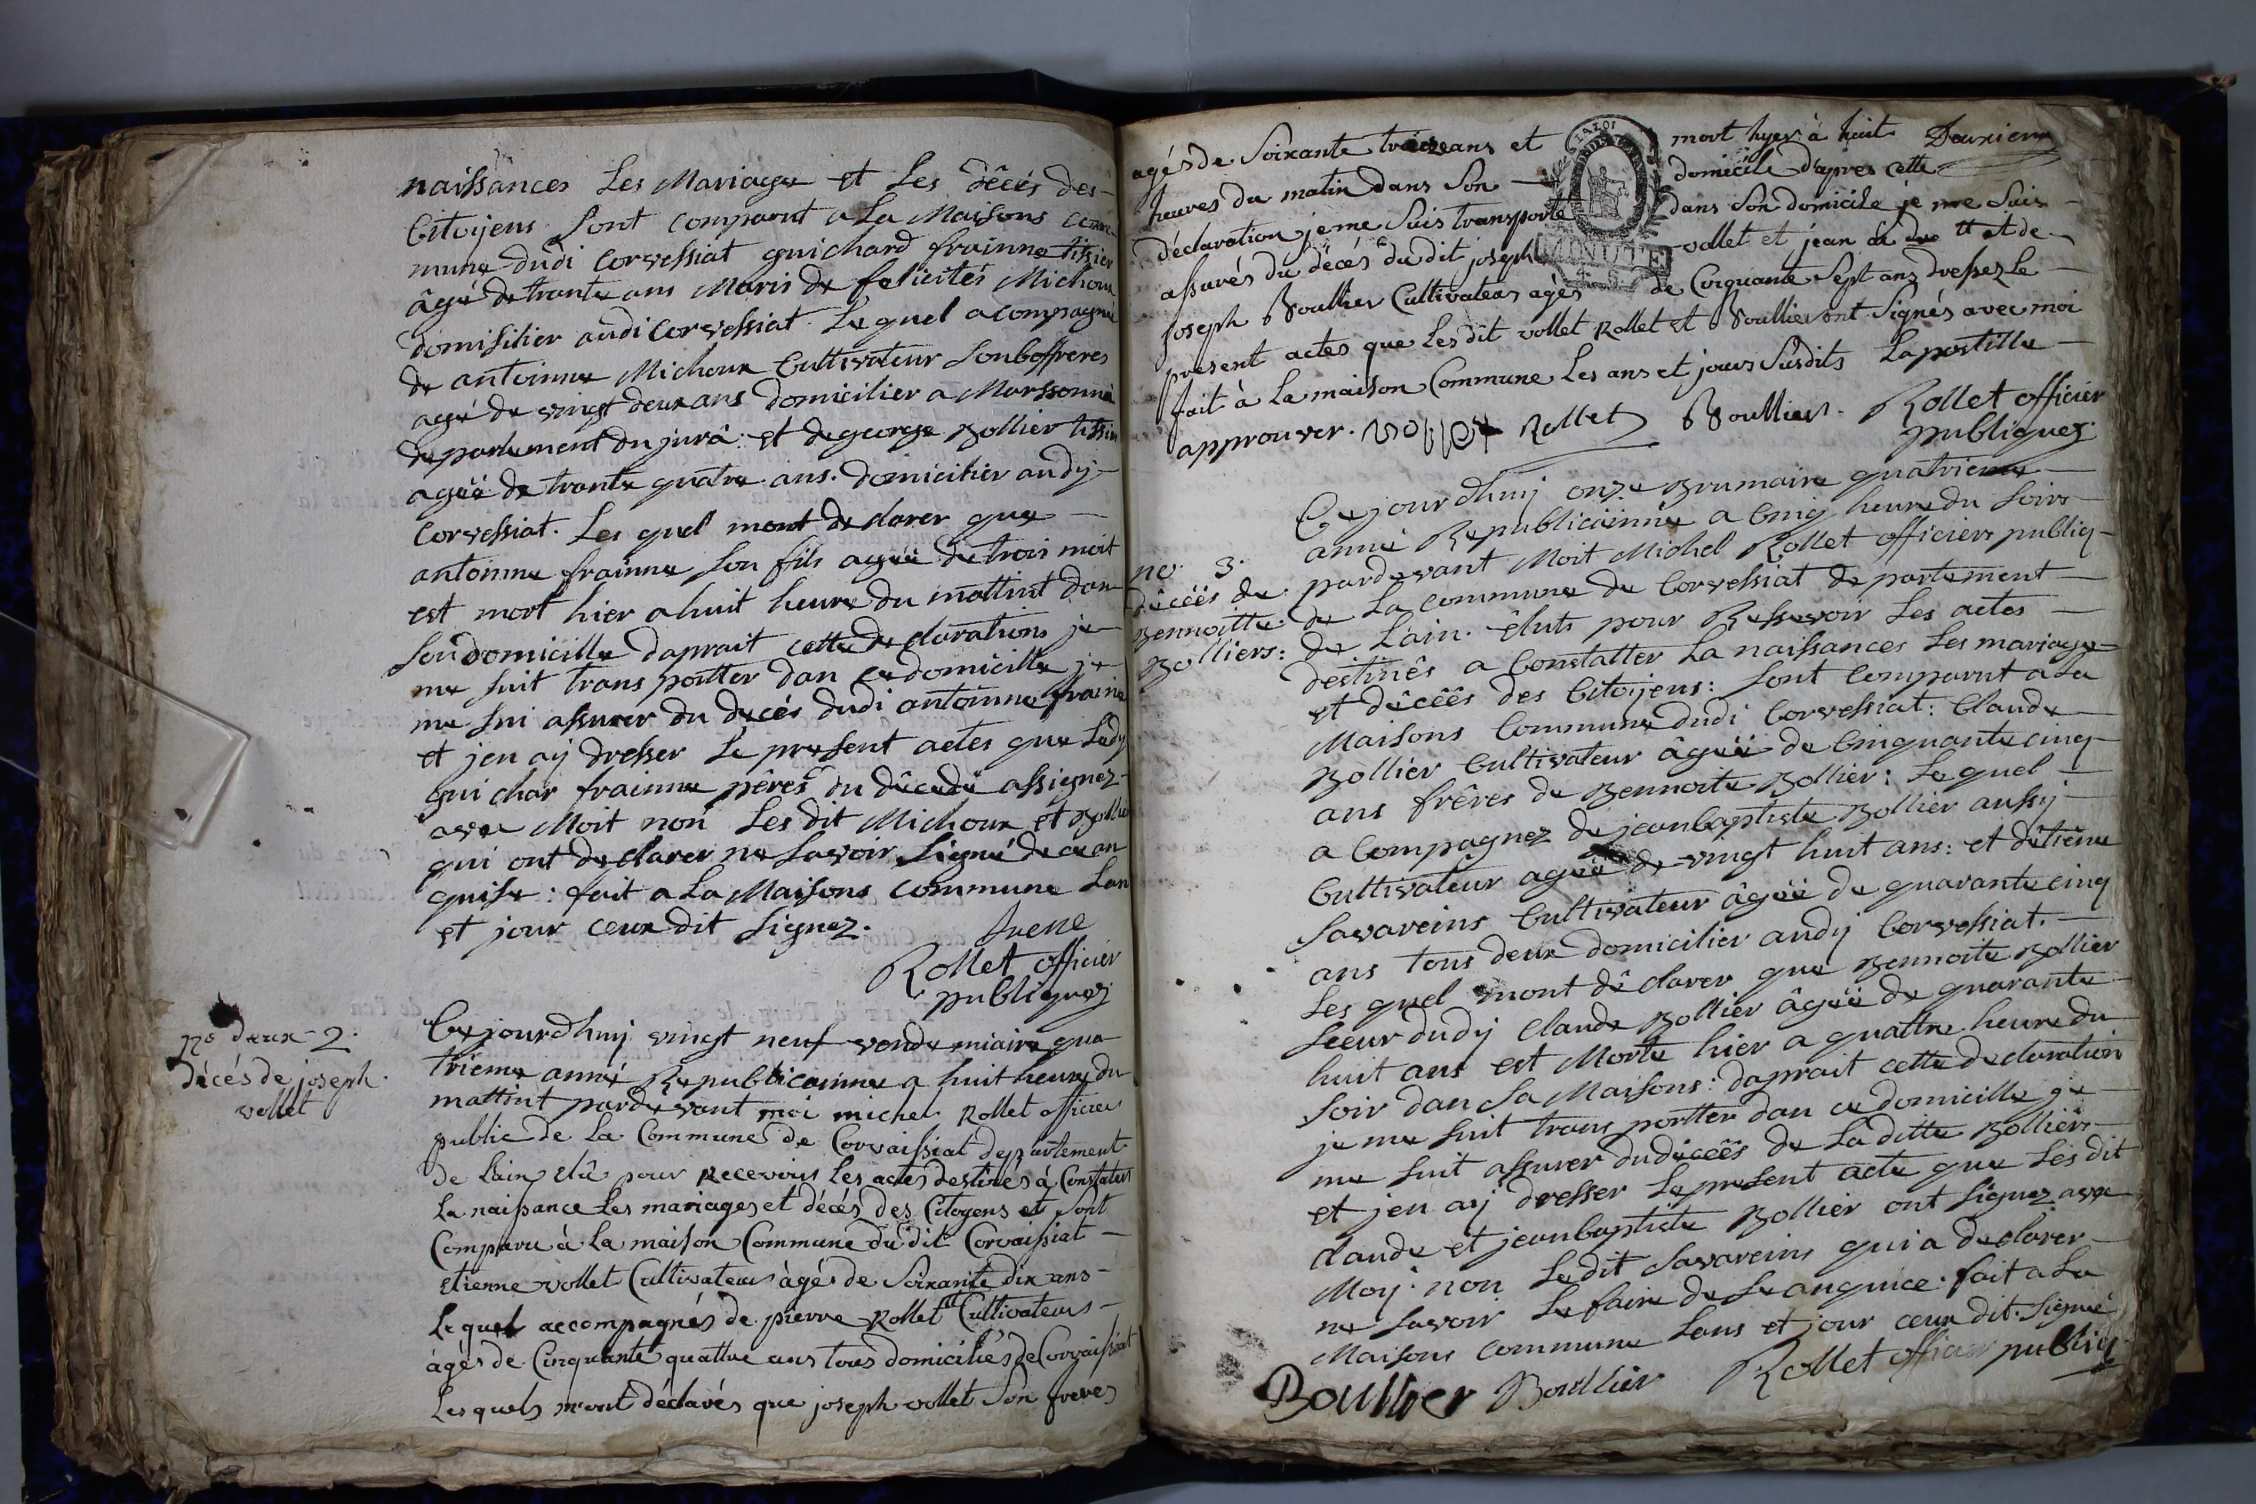 naissances Les Mariage et Les décés des
Citoÿens sont comparut a La Maisons com-
mune dudi Corvessiat guichard frainne tissier
âgée de trante ans Maris de felicités Michoux
domisilier audi Corvessiat. Le quel acompagné
de antoinne Michoux Cultivateur son boffreres
agé de vingt deux ans domicilier a Marssonna
departement du jura: et de george Bollier tissié
ageë de trante quatre ans. domicilier audÿ
Corvessiat. Les quel mont declarer que
antoinne frainne son fils ageë de trois moit
est mort hier a huit heure du mattint dan
son domicille daprait cette declarations je
me suit trans portter dan ce domicille je
me sui assurer du decés dudi antoinne fraine
et jen aÿ dresser Le present actes que Ledÿ
gui char frainne pêres du décedé assignez
avec Moit non Les dit Michoux et Bollie
qui ont declarer ne savoir Signé de ce an
quise: fait a La Maisons Commune Lan
et jour ceux dit signez.
frene
Rollet officier
publiquez
no deux - 2.
décés de joseph
vollet
Cejourdhuij vingt neuf vendemiaire qua
trième anné Republicainne a huit heure du
mattint pardevant moi michel Rollet officier
public de La Commune de Corvaissiat departement
de Lain elû pour Recevoir Les actes destinés à Constater
La naissance Les mariages et décés des Citoyens et sont
Comparu à La maison Commune du dit Corvaissiat
etienne vollet Cultivateur âgés de Soixante dix ans
Le quel accompagnés de pierre Rollet Cultivateurs
âgés de Cinquante quattre ans tous domiciliés de Corvaissiat
Lesquels mont déclarés que joseph vollet Son freres
agés de Soixante treize ans et mort hyer à huit Deuxieme
heures du matin dans Son domicile dapres cette
déclaration je me Suis transporté dans Son domicile je me Suis
assurés du décés du dit joseph vollet et jean et de
joseph Boullier Cultivateur agés de Cinquante Sept ans dressez le
présent actes que Lesdit vollet Rollet et Boullier ont Signés avec moi
fait à La maison Commune Les ans et jours Susdits Lapostille
approuver. vollet Rollet Boullier. Rollet officier
publiquez
LA LOI
MINUTE
no. 3.
dêcëés de
Bennoitte
Bolliers:
Cejourdhuij onze Brumaire quatrieme
anné Republiciënne a Cinq heure du soire
pardevant Moit Michel Rollet officiers publiq
de La commune de Corvessiat departement
de Lain. êluts pour Ressevoir Les actes
destinês a Constatter La naissances Les mariage
et dêcëês des Citoÿens: sont Comparut a La
Maisons Commune dudi Corvessiat: Claude
Bollier Cultivateur âgeë de Cinquante cinq
ans frêres de Bennoite Bollier: Le quel
a Compagnez de jeanbaptiste Bollier aussÿ
Cultivateur ageë de vingt huit ans: et dêtiêne
Savareins Cultivateur âgeë de quarante cinq
ans tous deux domicilier audÿ Corvessiat.
Les quel mont dêclarer que Bennoite Bollier
seeur dudÿ Claude Bollier âgeë de quarante
huit ans est Morte hier a quattre heure du
soir dan Sa Maisons: daprait cette declaration
je me suit trans portter dan ce domicille je
me suit assurer du dëcëês de La ditte Bolliers
et jen aÿ dresser Le present acte que Les dit
claude et jeanbaptiste Bollier ont signez avec
Moÿ. non Le dit Savareins qui a declarer
ne Savoir Le faire de Le anquice. fait a La
Maisons Commune Lans et jour ceux dit. Signié
Boullier Boullier Rollet officier publiq